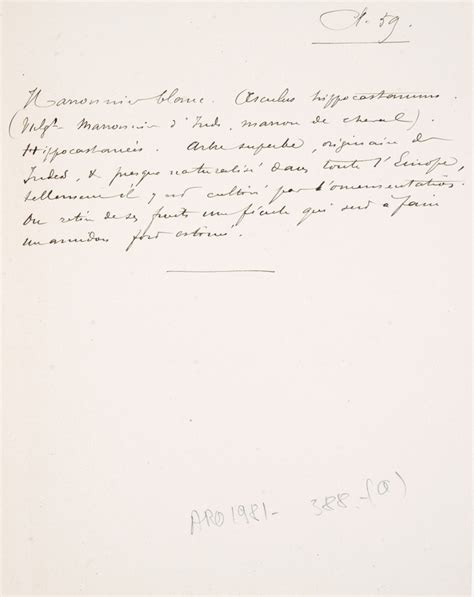 A. 59.
Marronnier blanc. Æsculus hippocastanum.
(Vulgt Marronnier d'Inde, marron de cheval).
Hippocastanées. Arbre superbe, originaire de
Indes, & presque naturalisé dans toute l'Europe,
tellement il y est cultivé par d'ornementation.
On retire de ses fruits une fécule qui sert à faire
un amidon fort estimé.
ARO 1981- 388-(0)